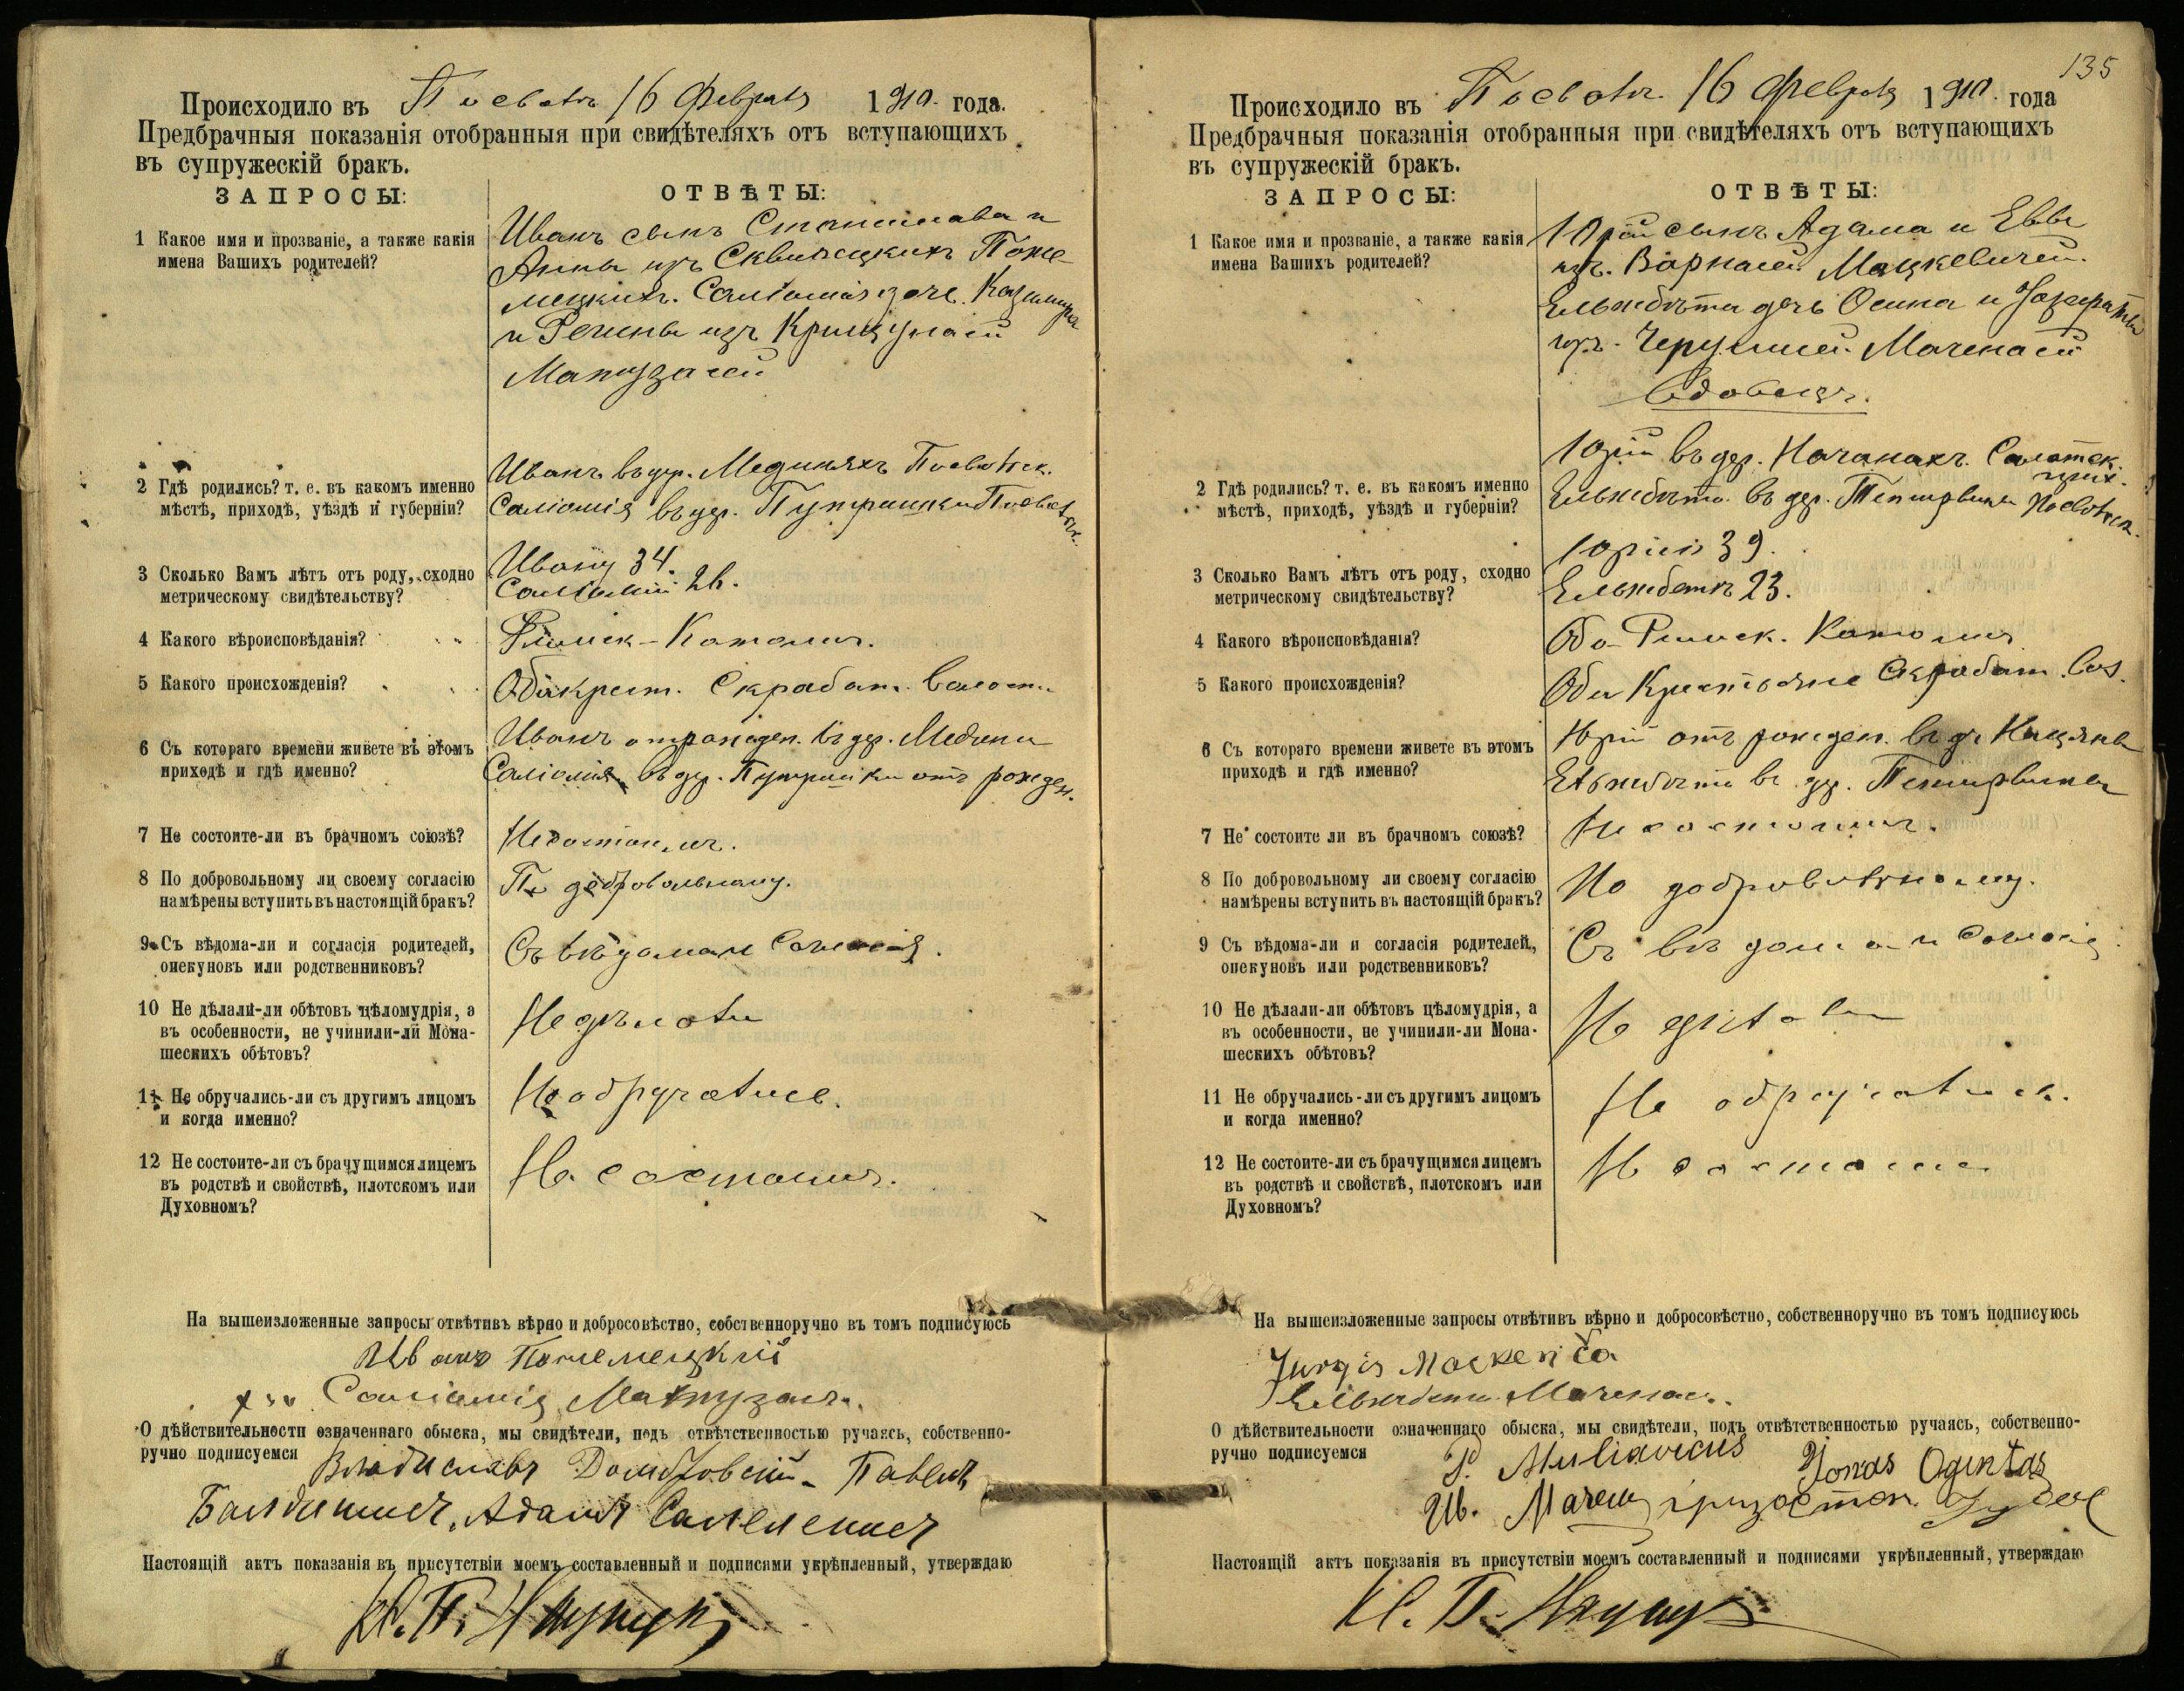 Происходило въ 16 Февраля 1910 года.
Предбрачныя показанія отобранныя при свидѣтеляхъ отъ вступающихъ
въ супружескій бракъ.
ЗАПРОСЫ:
ОТВѢТЫ:
1 Какое имя и прозваніе, а также какія
имена Вашихъ родителей?
Иванъ сынъ Станислава и
Анны изъ
Саліомія дочь Казимира
и Регины изъ
2 Гдѣ родились? т. е. въ какомъ именно
мѣстѣ, приходѣ, уѣздѣ и губерніи?
Иванъ въ дер.
Саліомія въ дер.
3 Сколько Вамъ лѣтъ отъ роду, сходно
метрическому свидѣтельству?
Ивану 34.
Саліоміи 26.
4 Какого вѣроисповѣданія?
Римск-Католич.
5 Какого происхожденія?
Оба крест. Скрабат. волости
6 Съ котораго времени живете въ этомъ
приходѣ и гдѣ именно?
Иванъ отъ рожден. въ дер.
Саліомія въ дер. отъ рожден.
7 Не состоите-ли въ брачномъ союзѣ?
Не состоимъ.
8 По добровольному ли своему согласію
намѣрены вступить въ настоящій бракъ?
По добровольному.
9 Съ вѣдома-ли и согласія родителей,
опекуновъ или родственниковъ?
Съ вѣдома и согласія.
10 Не дѣлали-ли обѣтовъ цѣломудрія, а
въ особенности, не учинили-ли Мона-
шескихъ обѣтовъ?
Не дѣлали
11 Не обручались-ли съ другимъ лицомъ
и когда именно?
Не обручались.
12 Не состоите-ли съ брачущимся лицемъ
въ родствѣ и свойствѣ, плотскомъ или
Духовномъ?
Не состоимъ.
На вышеизложенные запросы отвѣтивъ вѣрно и добросовѣстно, собственноручно въ томъ подписуюсь
Иванъ
Саліомія
О дѣйствительности означеннаго обыска, мы свидѣтели, подъ отвѣтственностью ручаясь, собственно-
ручно подписуемся
Владиславъ Домбровскій Павелъ
Адамъ
Настоящій актъ показанія въ присутствіи моемъ составленный и подписями укрѣпленный, утверждаю
135
Происходило въ 16 Февраля 1910 года
Предбрачныя показанія отобранныя при свидѣтеляхъ отъ вступающихъ
въ супружескій бракъ.
ЗАПРОСЫ:
ОТВѢТЫ:
1 Какое имя и прозваніе, а также какія
имена Вашихъ родителей?
Юрій сынъ Адама и Еввы
изъ Мацкевичей.
Ельжбѣта дочь Осипа и
изъ
Вдовецъ.
2 Гдѣ родились? т. е. въ какомъ именно
мѣстѣ, приходѣ, уѣздѣ и губерніи?
Юрій въ дер. Салатск.
прих.
Ельжбѣта въ дер.
3 Сколько Вамъ лѣтъ отъ роду, сходно
метрическому свидѣтельству?
Юрію 39.
Ельжбетѣ 23.
4 Какого вѣроисповѣданія?
Оба Римск. Католич
5 Какого происхожденія?
Оба Крестьяне Скрабат. вол.
6 Съ котораго времени живете въ этомъ
приходѣ и гдѣ именно?
Юрій отъ рожден. въ д.
Ельжбѣта въ др.
7 Не состоите ли въ брачномъ союзѣ?
Не состоимъ.
8 По добровольному ли своему согласію
намѣрены вступить въ настоящій бракъ?
По добровольному.
9 Съ вѣдома-ли и согласія родителей,
опекуновъ или родственниковъ?
Съ вѣдома и согласія
10 Не дѣлали-ли обѣтовъ цѣломудрія, а
въ особенности, не учинили-ли Мона-
шескихъ обѣтовъ?
Не дѣлали
11 Не обручались-ли съ другимъ лицомъ
и когда именно?
Не обручались.
12 Не состоите-ли съ брачущимся лицемъ
въ родствѣ и свойствѣ, плотскомъ или
Духовномъ?
Не состоимъ
На вышеизложенные запросы отвѣтивъ вѣрно и добросовѣстно, собственноручно въ томъ подписуюсь
Jurgis Mackeviča
О дѣйствительности означеннаго обыска, мы свидѣтели, подъ отвѣтственностью ручаясь, собственно-
ручно подписуемся
P. Muliavicus Jonas Agintas
Настоящій актъ показанія въ присутствіи моемъ составленный и подписями укрѣпленный, утверждаю